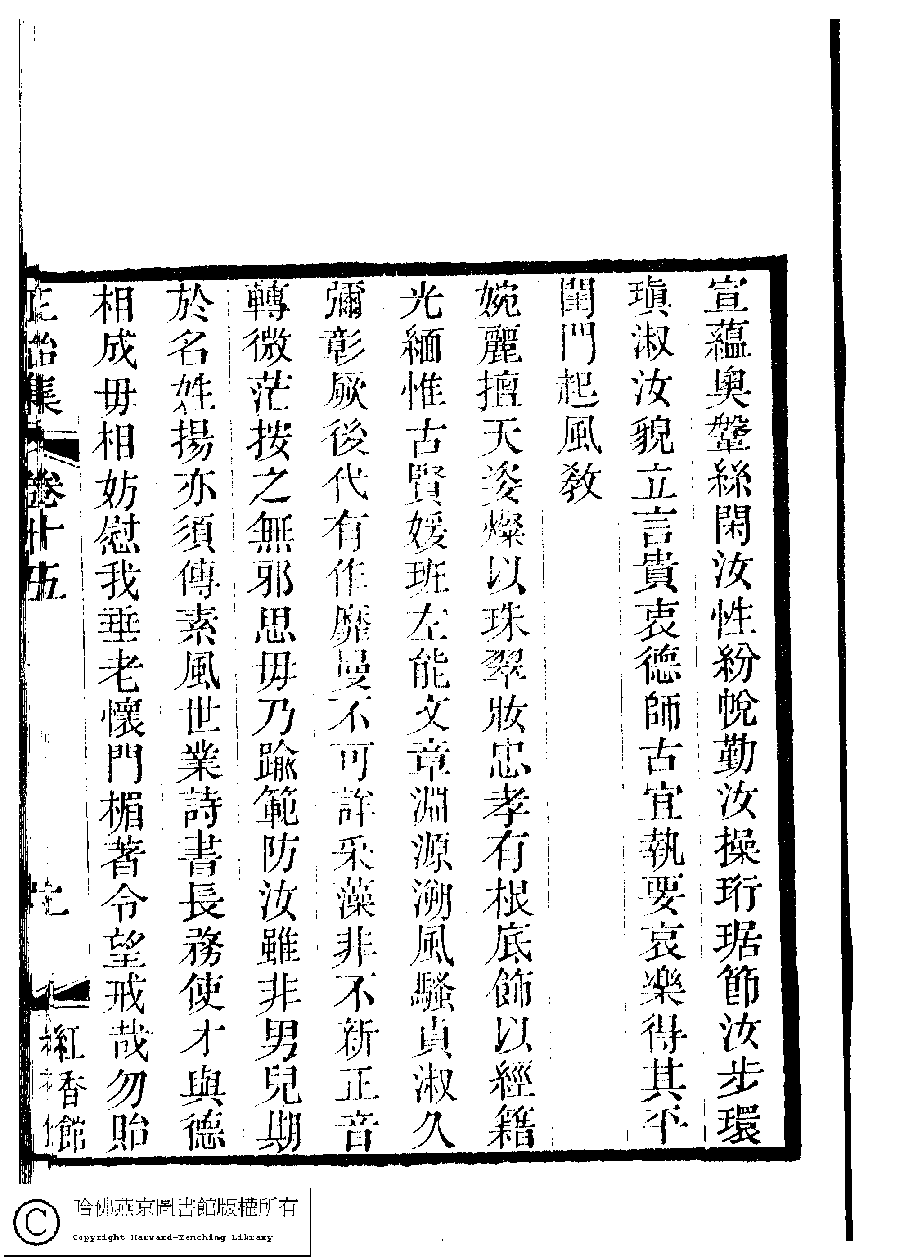 宣蘊奧鞶絲閑汝性紛帨勤汝操珩琚節汝步環
瑱淑汝貌立言貴衷德師古宜執要哀樂得其平
閨門起風敎
婉麗擅天姿燦以珠翠妝忠孝有根底飾以經籍
光緬惟古賢媛班左能文章淵源溯風騷貞淑久
彌彰厥後代有作靡曼不可詳采藻非不新正音
轉微茫按之無邪思毋乃踰範防汝雖非男兒期
於名姓揚亦須傳素風世業詩書長務使才與德
相成毋相妨慰我垂老懷門楣著令望戒哉勿貽
正始集
卷十五
紅香館
哈佛燕京圖書館版權所有
Copyright Harvard-Yenching Library